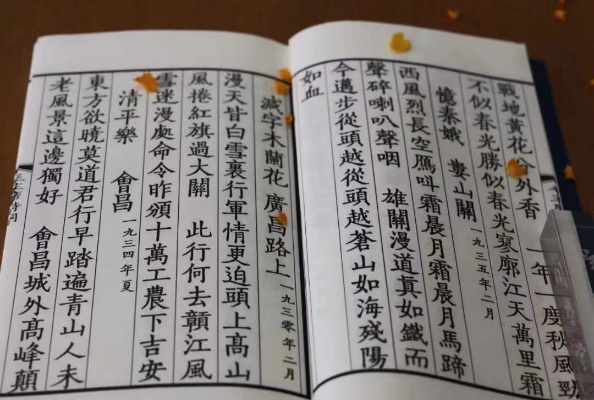 戰地黃花分外香　一年一度秋風勁
不似春光勝似春光寥廓江天萬里霜
憶秦娥　婁山關　一九三五年二月
西風烈長空鴈叫霜晨月霜晨月馬蹄
聲碎喇叭聲咽　雄關漫道真如鐵而
今邁步從頭越從頭越蒼山如海殘陽
如血
減字木蘭花　廣昌路上　一九三〇年二月
漫天皆白雪裏行軍情更迫頭上高山
風捲紅旗過大關　此行何去贛江風
雪迷漫處命令昨頒十萬工農下吉安
清平樂　會昌　一九三四年夏
東方欲曉莫道君行早踏遍青山人未
老風景這邊獨好　會昌城外高峰顛